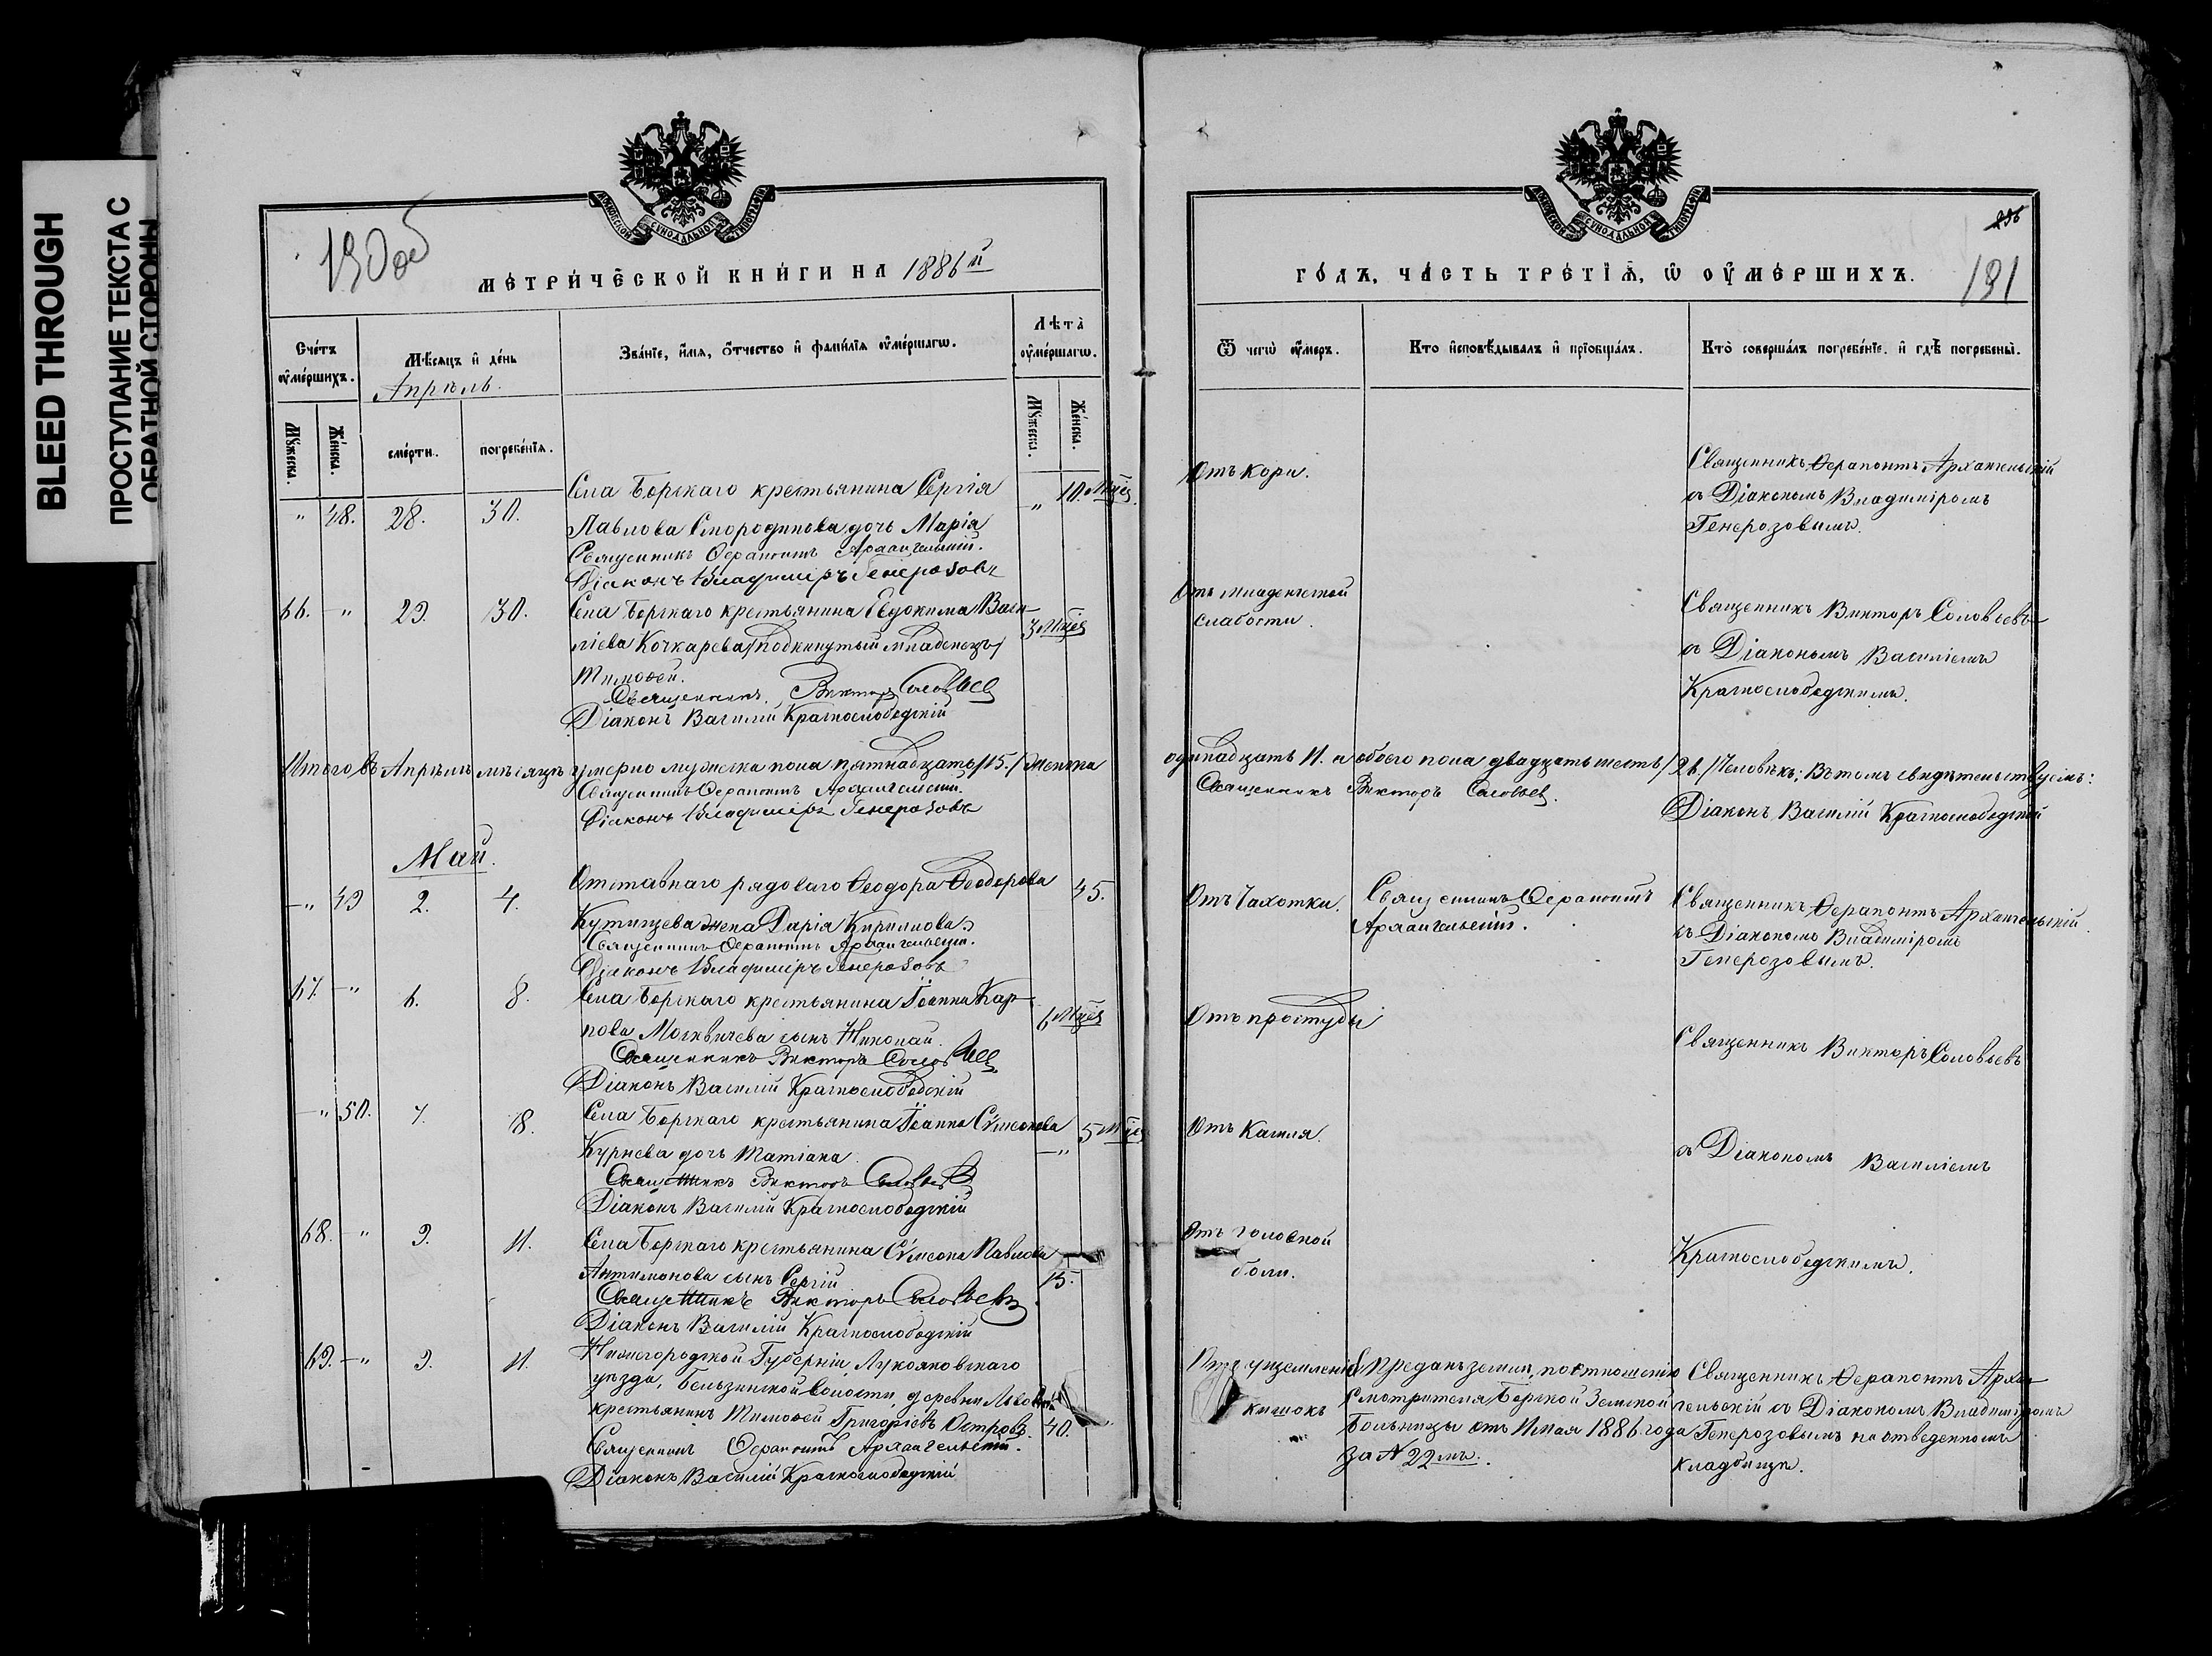 BLEED THROUGH
ПРОСТУПАНИЕ ТЕКСТА С
ОБРАТНОЙ СТОРОНЫ
МОСКОВСКОЙ СУНОДАЛЬНОЙ ТИПОГРАФІИ
190 об
МЕТРИЧЕСКОЙ КНИГИ НА 1886 й
Счетъ умершихъ.
Мѣсяцъ и день
Званіе, имя, отчество и фамилія умершагѡ.
Лѣта умершагѡ.
Апрѣль.
Мꙋжеска.
Женска.
смерти.
погребенія.
Мꙋжеска.
Женска.
" 48. 28. 30. Села Борскаго крестьянина Сергія — " 10. Мцев
Павлова Смородинова дочь Марія
Священникъ Ѳерапонтъ Архангельскій.
Діаконъ Владиміръ Генерозовъ
66. — " 29. 30. Села Борскаго крестьянина Евдокима Васи- 3 Мцев
ліева Кочкарева /подкинутый младенецъ/
Тимоѳей.
Священникъ Викторъ Соловьев
Діаконъ Василій Краснослободскій
Итого въ Апрѣлѣ мѣсяцѣ умерло мужеска пола пятнадцать /15./ женска
Священникъ Ѳерапонтъ Архангельскій.
Діаконъ Владиміръ Генерозовъ
Май.
— " 49 2. 4. Отставнаго рядоваго Ѳеодора Ѳеодорова 45.
Кутищева жена Дарія Кирилова.
Священникъ Ѳерапонтъ Архангельскій.
Діаконъ Владиміръ Генерозовъ
67. — " 6. 8. Села Борскаго крестьянина Іоанна Кар- 6 Мцев
пова Москвичева сынъ Николай.
Священникъ Викторъ Соловьев
Діаконъ Василій Краснослободскій
— " 50. 7. 8. Села Борскаго крестьянина Іоанна Сѵмеонова 5 Мцев
Курнева дочь Татіана. — "
Священникъ Викторъ Соловьев
Діаконъ Василій Краснослободскій
68. — " 9. 11. Села Борскаго крестьянина Сѵмеона Павлова
Антимонова сынъ Сергій 15.
Священникъ Викторъ Соловьевъ
Діаконъ Василій Краснослободскій
69. — " 9. 11. Нижегородской Губерніи, Лукояновскаго
уѣзда, Бельзинской волости, деревни
крестьянинъ Тимоѳей Григоріевъ Островъ 40.
Священникъ Ѳерапонтъ Архангельскій.
Діаконъ Василій Краснослободскій
МОСКОВСКОЙ СУНОДАЛЬНОЙ ТИПОГРАФІИ
191
ГОДЪ, ЧАСТЬ ТРЕТІѦ, Ѡ ОУМЕРШИХЪ.
Ѿ чегѡ умеръ.
Кто исповѣдывалъ и пріобщалъ.
Кто совершалъ погребеніе, и гдѣ погребены.
Отъ кори.
Священникъ Ѳерапонтъ Архангельскій
съ Діакономъ Владиміромъ
Генерозовымъ.
Отъ младенческой
слабости.
Священникъ Викторъ Соловьевъ
съ Діакономъ Василіемъ
Краснослободскимъ.
одинадцать 11. и обоего пола двадцать шесть /26./ Человѣкъ; Въ томъ свидѣтельствуемъ:
Священникъ Викторъ Соловьев.
Діаконъ Василій Краснослободскій
Отъ Чахотки.
Священникъ Ѳерапонтъ
Архангельскій.
Священникъ Ѳерапонтъ Архангельскій
съ Діакономъ Владиміромъ
Генерозовымъ.
Отъ простуды
Священникъ Викторъ Соловьевъ
Отъ Кашля.
съ Діакономъ Василіемъ
Отъ головной
боли.
Краснослободскимъ.
Отъ ущемленія
кишокъ
Преданъ земли, по отношенію
Смотрителя Борской Земской
Больницы отъ 11 мая 1886 года
за № 22 мъ.
Священникъ Ѳерапонтъ Архан-
гельскій съ Діакономъ Владиміромъ
Генерозовымъ на отведенномъ
кладбищѣ.